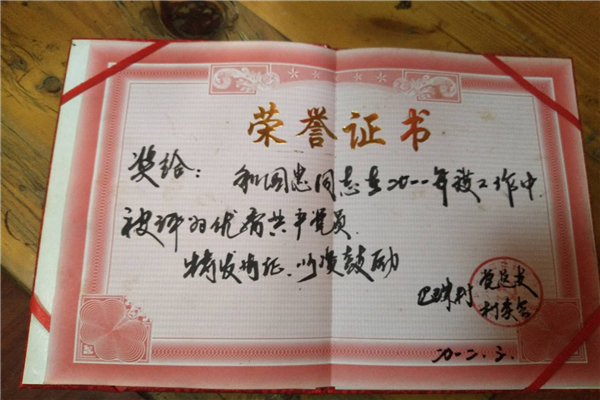 荣誉证书
奖给：和国忠同志在二0一一年度工作中
被评为优秀共产党员
特发此证.以资鼓励
村 党总支
村委会
二0一二.三.